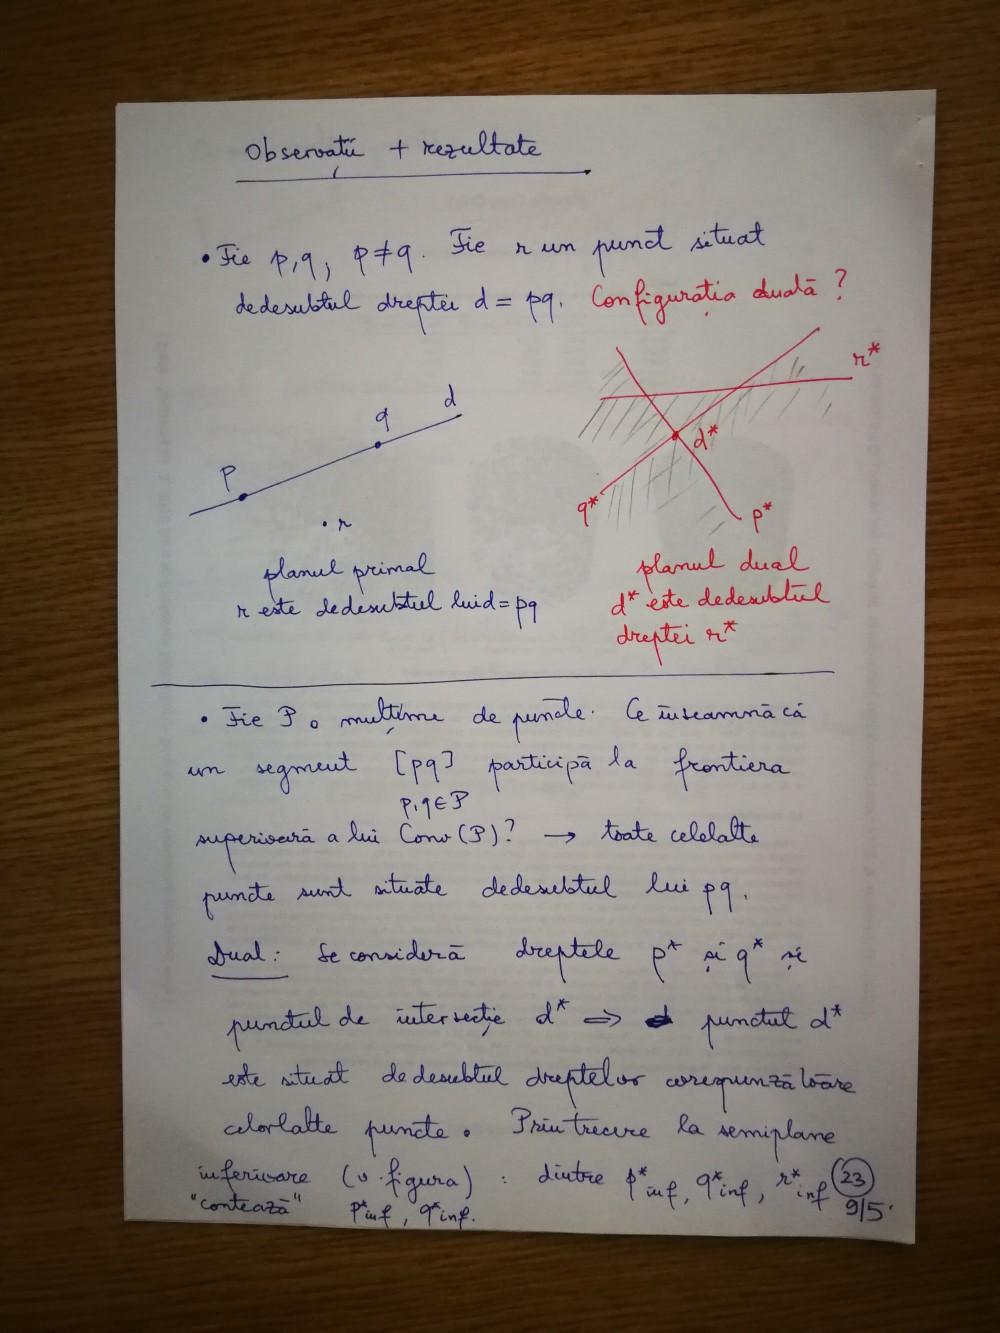 Observații + rezultate
• Fie p,q, p≠q. Fie r un punct situat
dedesubtul dreptei d = pq. Configurația duală?
d
q
p
r
r*
d*
q*
p*
planul primal
r este dedesubtul lui d=pq
planul dual
d* este dedesubtul
dreptei r*
• Fie P o mulțime de puncte. Ce înseamnă că
un segment [pq] participă la frontiera
p,q∈P
superioară a lui Conv(P)? → toate celelalte
puncte sunt situate dedesubtul lui pq.
Dual: Se consideră dreptele p* și q* și
punctul de intersecție d* ⇒ punctul d*
este situat dedesubtul dreptelor corespunzătoare
celorlalte puncte. Prin trecere la semiplane
inferioare (v. figura) : dintre p*inf, q*inf, r*inf
"contează" p*inf, q*inf.
23
9/5